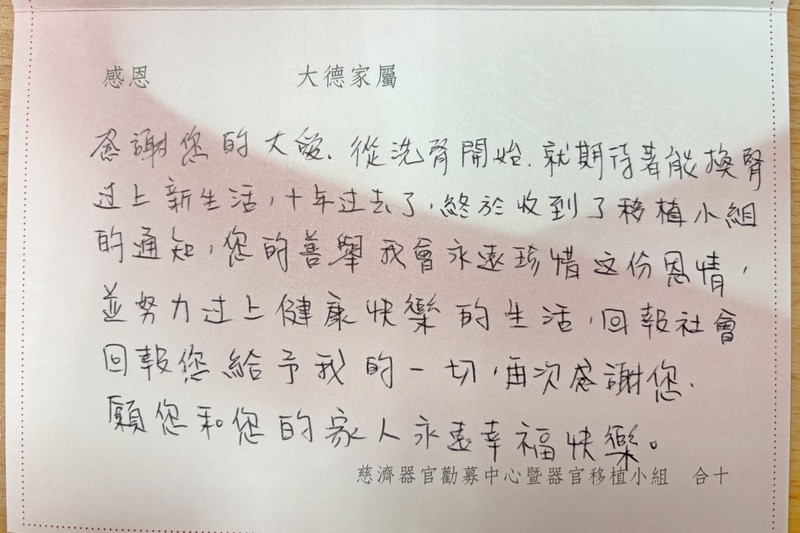 感恩　大德家屬
感謝您的大愛，從洗腎開始，就期待著能換腎
过上新生活，十年过去了，終於收到了移植小組
的通知，您的善舉我會永遠珍惜这份恩情，
並努力过上健康快樂的生活，回報社會
回報您給予我的一切，再次感謝您，
願您和您的家人永遠幸福快樂。
慈濟器官勸募中心暨器官移植小組　合十